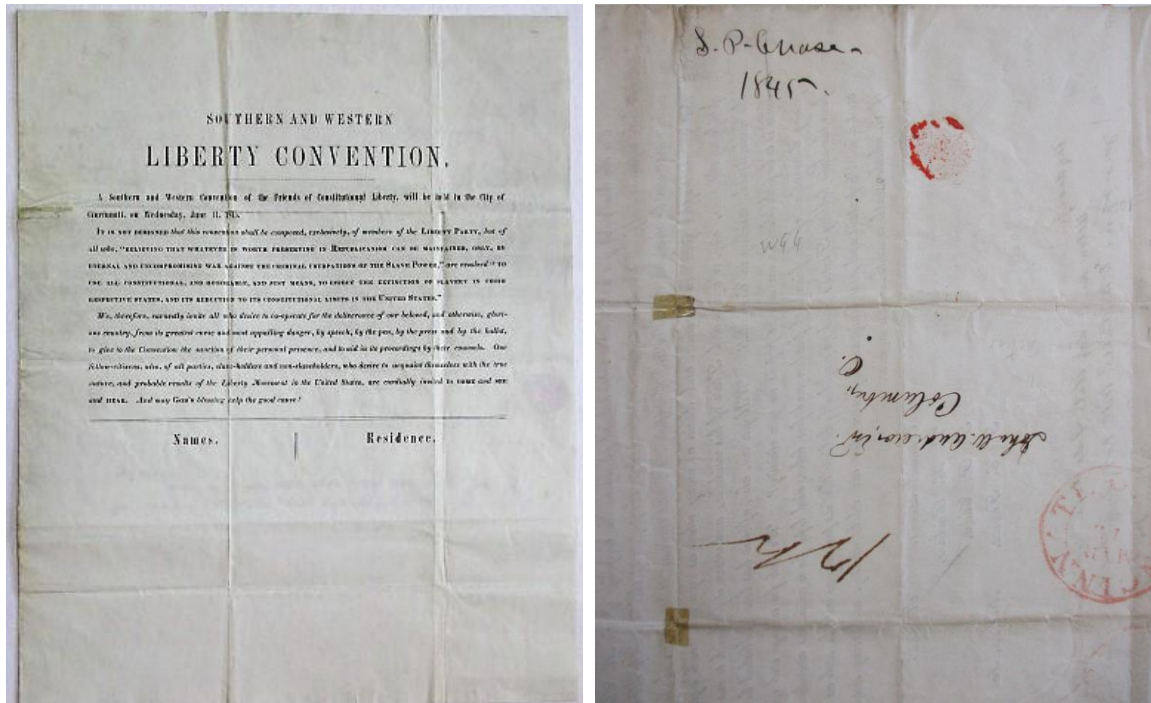 SOUTHERN AND WESTERN
LIBERTY CONVENTION.
A Southern and Western Convention of the Friends of Constitutional Liberty, will be held in the City of
Cincinnati, on Wednesday, June 11, 1845.
IT IS NOT DESIGNED that this convention shall be composed, exclusively, of members of the LIBERTY PARTY, but of
all who, "BELIEVING THAT WHATEVER IS WORTH PRESERVING IN REPUBLICANISM CAN BE MAINTAINED, ONLY, BY
ETERNAL AND UNCOMPROMISING WAR AGAINST THE CRIMINAL USURPATIONS OF THE SLAVE POWER," are resolved "TO
USE ALL CONSTITUTIONAL, AND HONORABLE, AND JUST MEANS, TO EFFECT THE EXTINCTION OF SLAVERY IN THEIR
RESPECTIVE STATES, AND ITS REDUCTION TO ITS CONSTITUTIONAL LIMITS IN THE UNITED STATES."
We, therefore, earnestly invite all who desire to co-operate for the deliverance of our beloved, and otherwise, glori-
ous country, from its greatest curse and most appalling danger, by speech, by the pen, by the press and by the ballot,
to give to the Convention the sanction of their personal presence, and to aid in its proceedings by their counsels. Our
fellow-citizens, also, of all parties, slave-holders and non-slaveholders, who desire to acquaint themselves with the true
nature, and probable results of the Liberty Movement in the United States, are cordially invited to COME and SEE
and HEAR. And may GOD's blessing help the good cause!
Names. Residence.
S. P. Chase
1845.
John W. Andrews,
Columbus,
O.